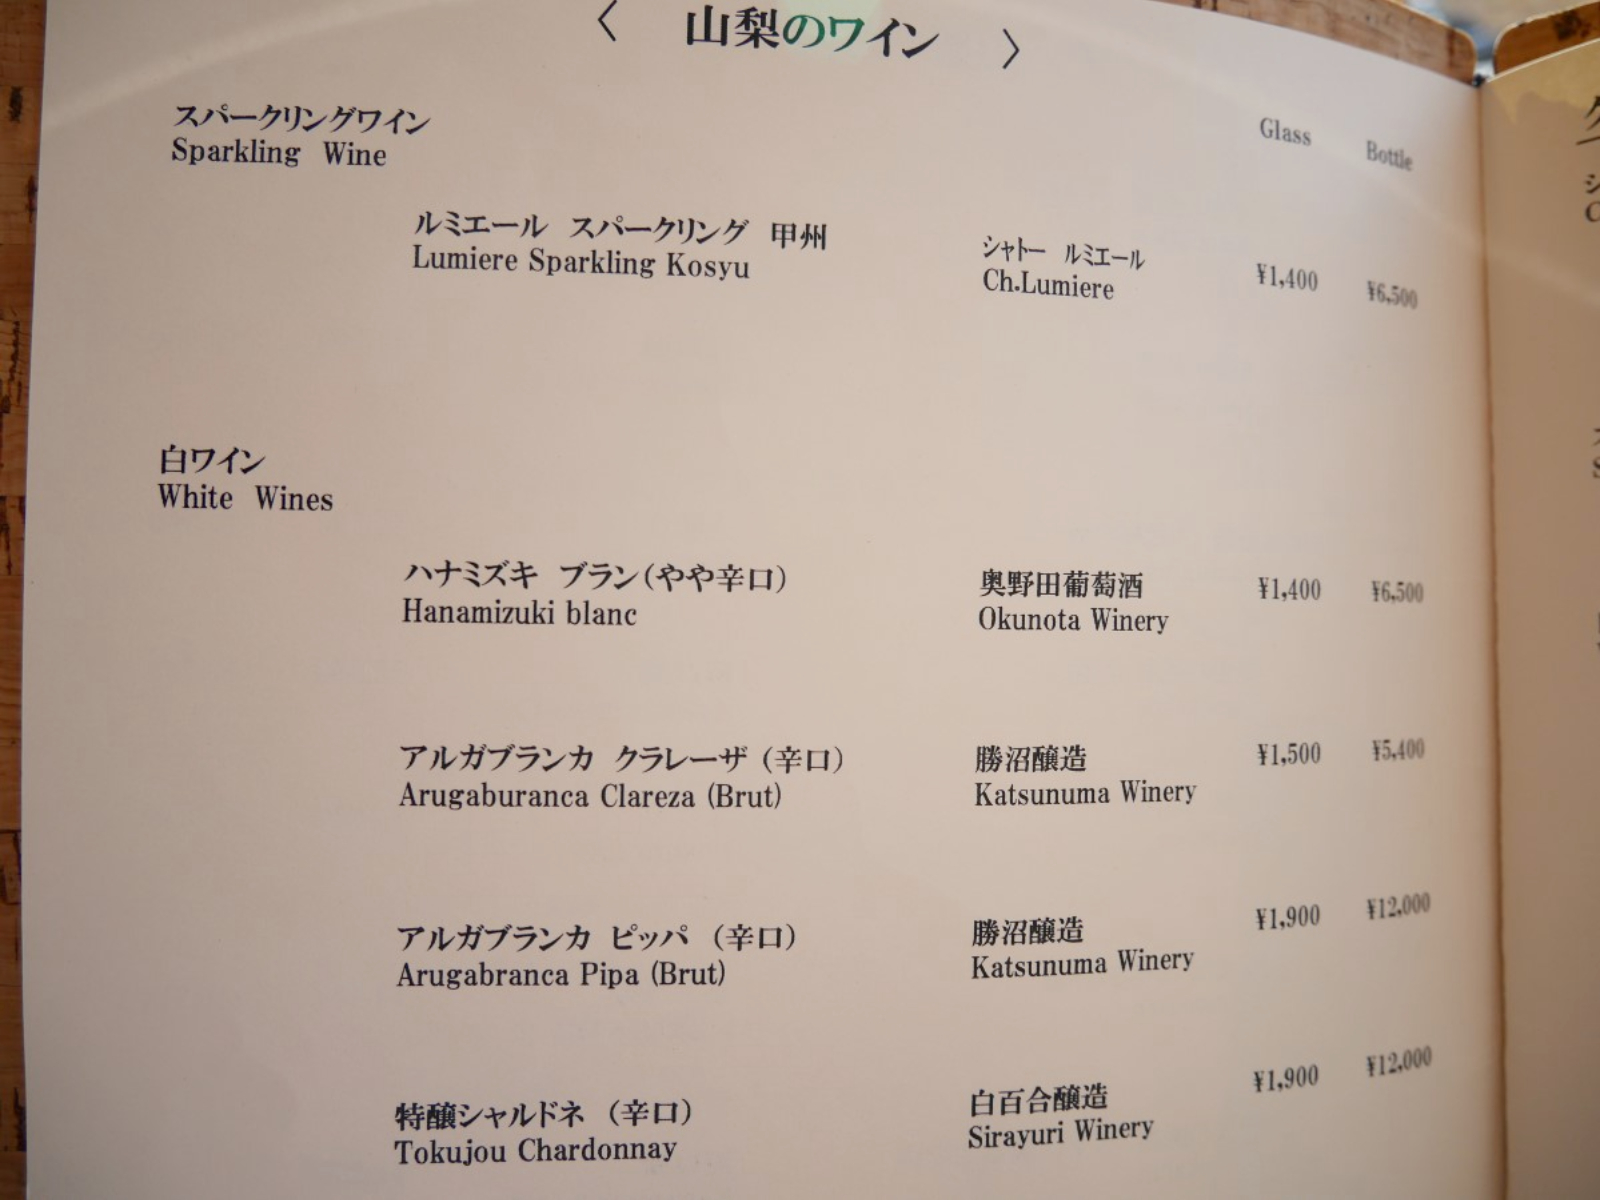 〈 山梨のワイン 〉
スパークリングワイン
Sparkling Wine
Glass Bottle
ルミエール スパークリング 甲州
Lumiere Sparkling Kosyu
シャトー ルミエール
Ch.Lumiere
¥1,400 ¥6,500
白ワイン
White Wines
ハナミズキ ブラン(やや辛口)
Hanamizuki blanc
奥野田葡萄酒
Okunota Winery
¥1,400 ¥6,500
アルガブランカ クラレーザ (辛口)
Arugaburanca Clareza (Brut)
勝沼醸造
Katsunuma Winery
¥1,500 ¥5,400
アルガブランカ ピッパ (辛口)
Arugabranca Pipa (Brut)
勝沼醸造
Katsunuma Winery
¥1,900 ¥12,000
特醸シャルドネ (辛口)
Tokujou Chardonnay
白百合醸造
Sirayuri Winery
¥1,900 ¥12,000